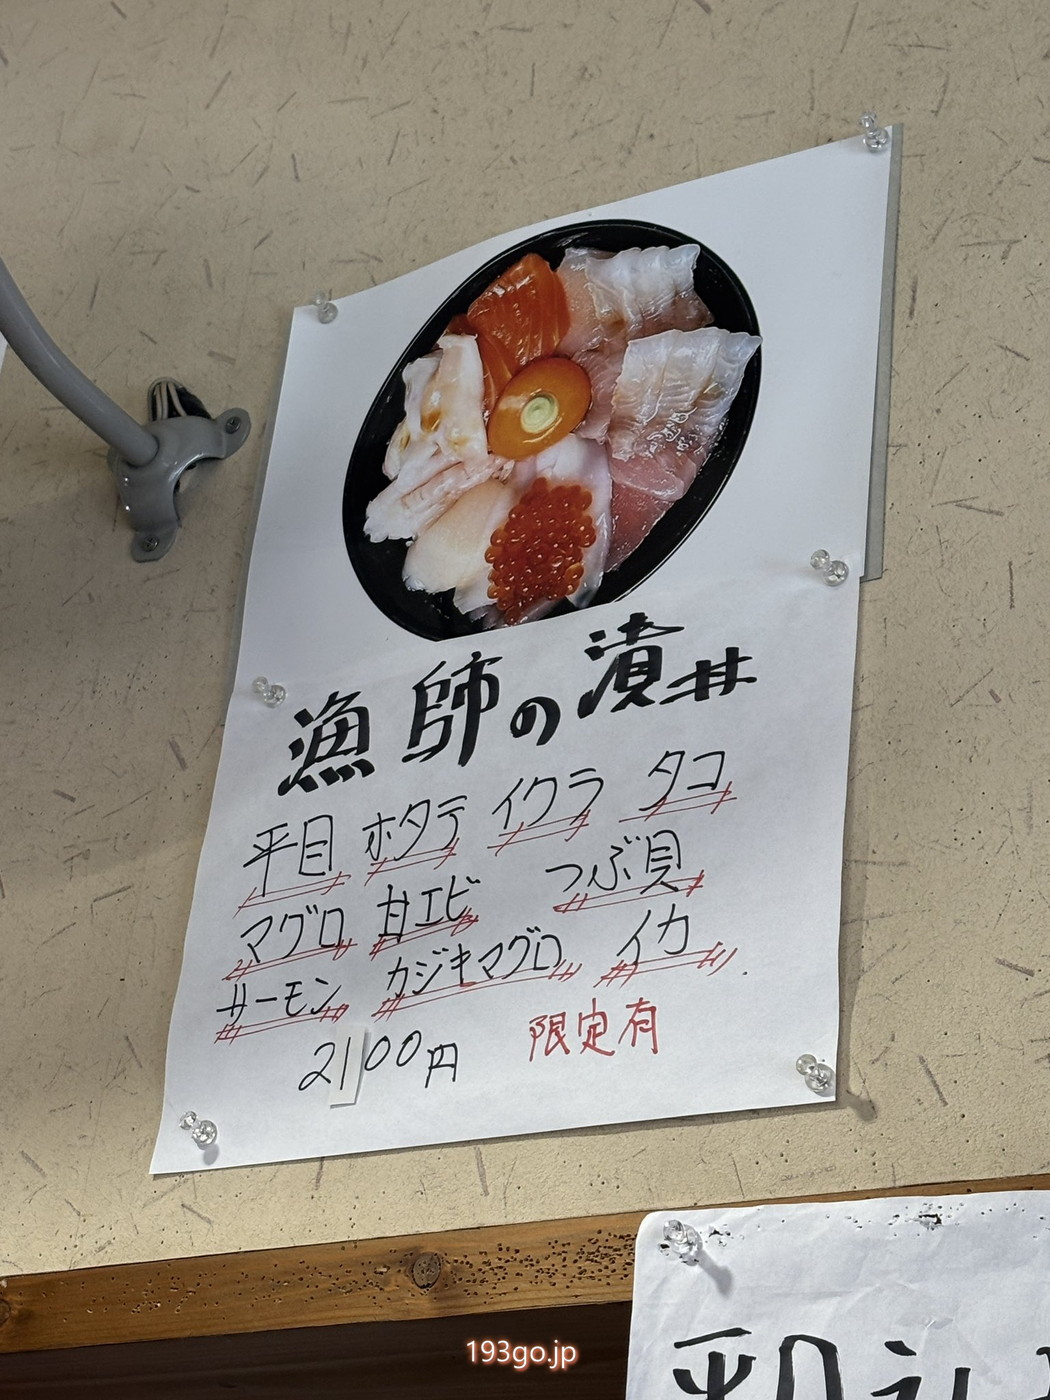 漁師の漬丼
平目 ホタテ イクラ タコ
マグロ 甘エビ つぶ貝
サーモン カジキマグロ イカ
2100円 限定有
193go.jp